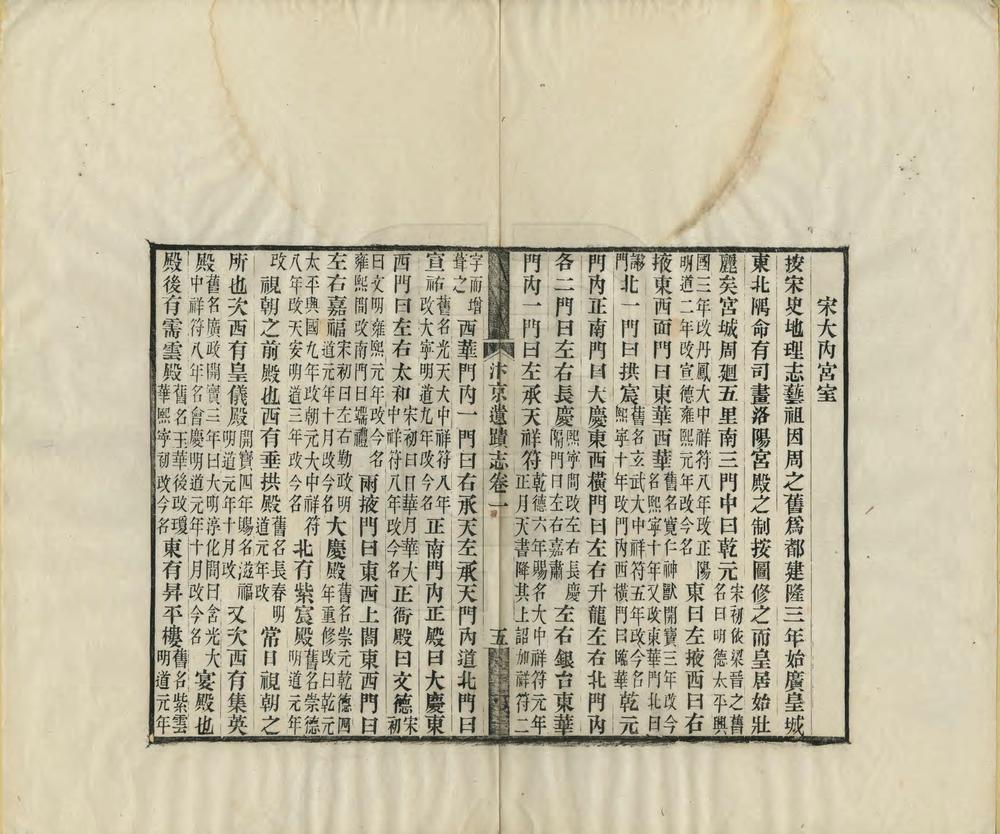 宋大內宮室
按宋史地理志藝祖因周之舊爲都建隆三年始廣皇城
東北隅命有司畫洛陽宮殿之制按圖修之而皇居始壯
麗矣宮城周廻五里南三門中曰乾元宋初依梁晉之舊名曰明德太平興
國三年改丹鳳大中祥符八年改正陽明道二年改宣德雍熙元年改今名東曰左掖西曰右
掖東西面門曰東華西華舊名寬仁神獸開寶三年改今名熙寧十年又改東華門北曰
謻門北一門曰拱宸舊名玄武大中祥符五年改今名熙寧十年改門內西橫門曰臨華乾元
門內正南門曰大慶東西橫門曰左右升龍左右北門內
各二門曰左右長慶熙寧間改左右長慶隔門曰左右嘉肅左右銀台東華
門內一門曰左承天祥符乾德六年賜名大中祥符元年正月天書降其上詔加祥符二
汴京遺蹟志卷一 五
字而增葺之西華門內一門曰右承天左承天門內道北門曰
宣祐舊名光天大中祥符八年改大寧明道九年改今名正南門內正殿曰大慶東
西門曰左右太和宋初曰日華月華大中祥符八年改今名正衙殿曰文德宋初
曰文明雍熙元年改今名雍熙間改南門曰端禮兩掖門曰東西上閤東西門曰
左右嘉福宋初曰左右勤政明道元年十月改今名大慶殿舊名崇元乾德四年重修改曰乾元
太平興國九年改朝元大中祥符八年改天安明道三年改今名北有紫宸殿舊名崇德明道元年
改視朝之前殿也西有垂拱殿舊名長春明道元年改常日視朝之
所也次西有皇儀殿開寶四年賜名滋福明道元年十月改又次西有集英
殿舊名廣政開寶三年曰大明淳化間曰含光大中祥符八年名會慶明道元年十月改今名宴殿也
殿後有需雲殿舊名玉華後改瓊華熙寧初改今名東有昇平樓舊名紫雲明道元年